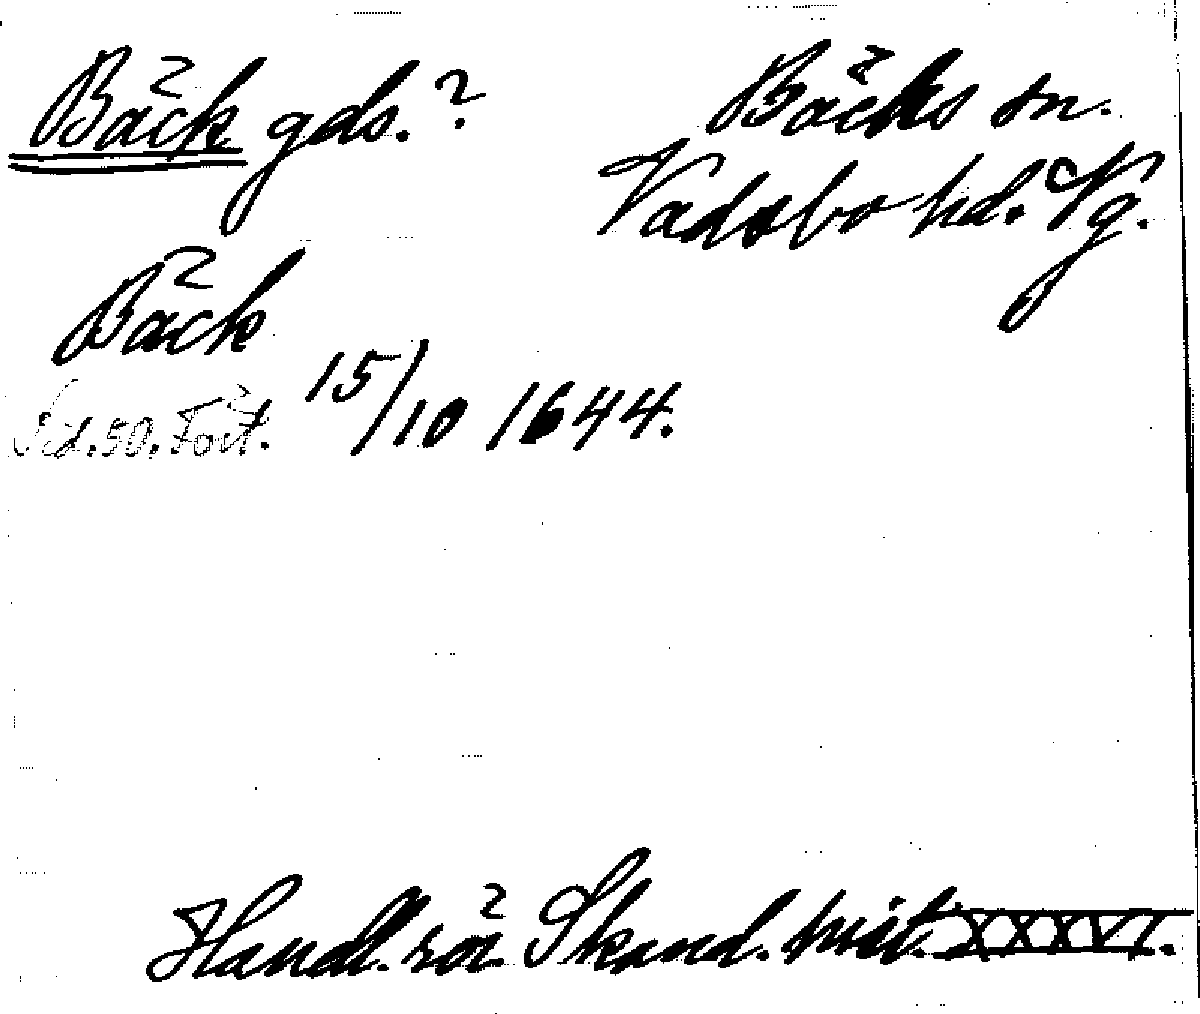 Bäck gds.?
Bäcks sn.
Vadsbo hd. Vg.
Bäck
Sid. 50. Fört. 15/10 1644.
Handl. rör. Skand. hist. XXXVI.